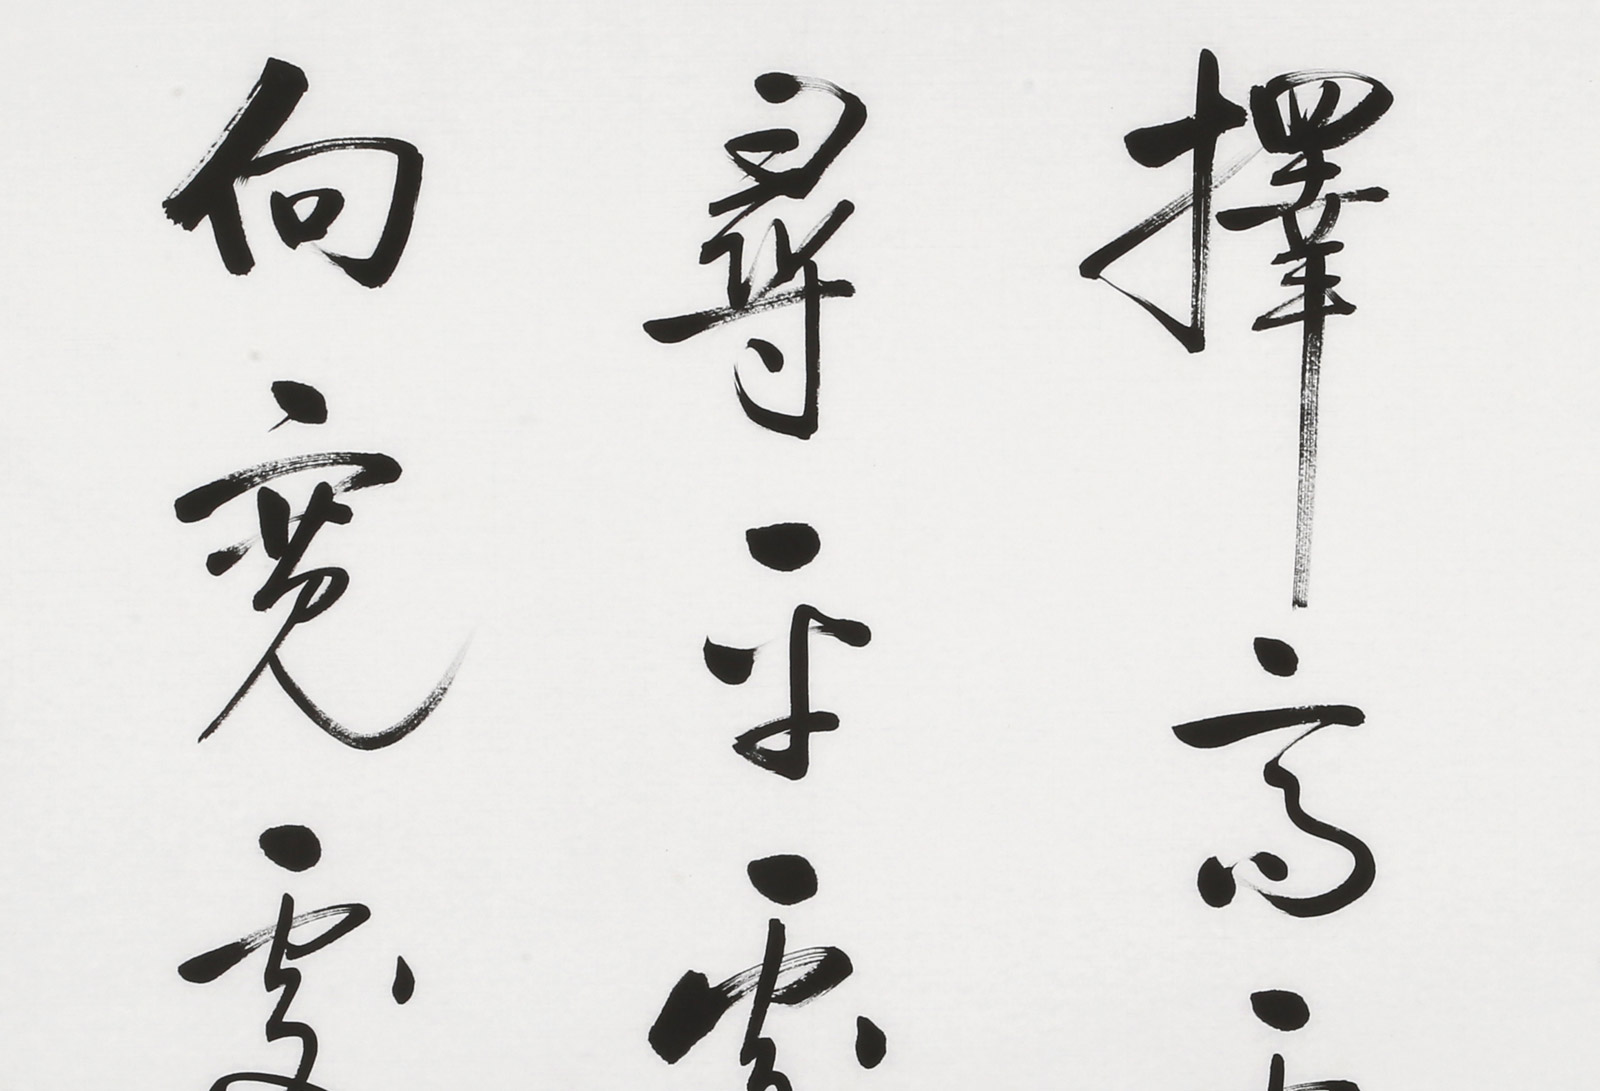 擇高
尋平處
向寬處